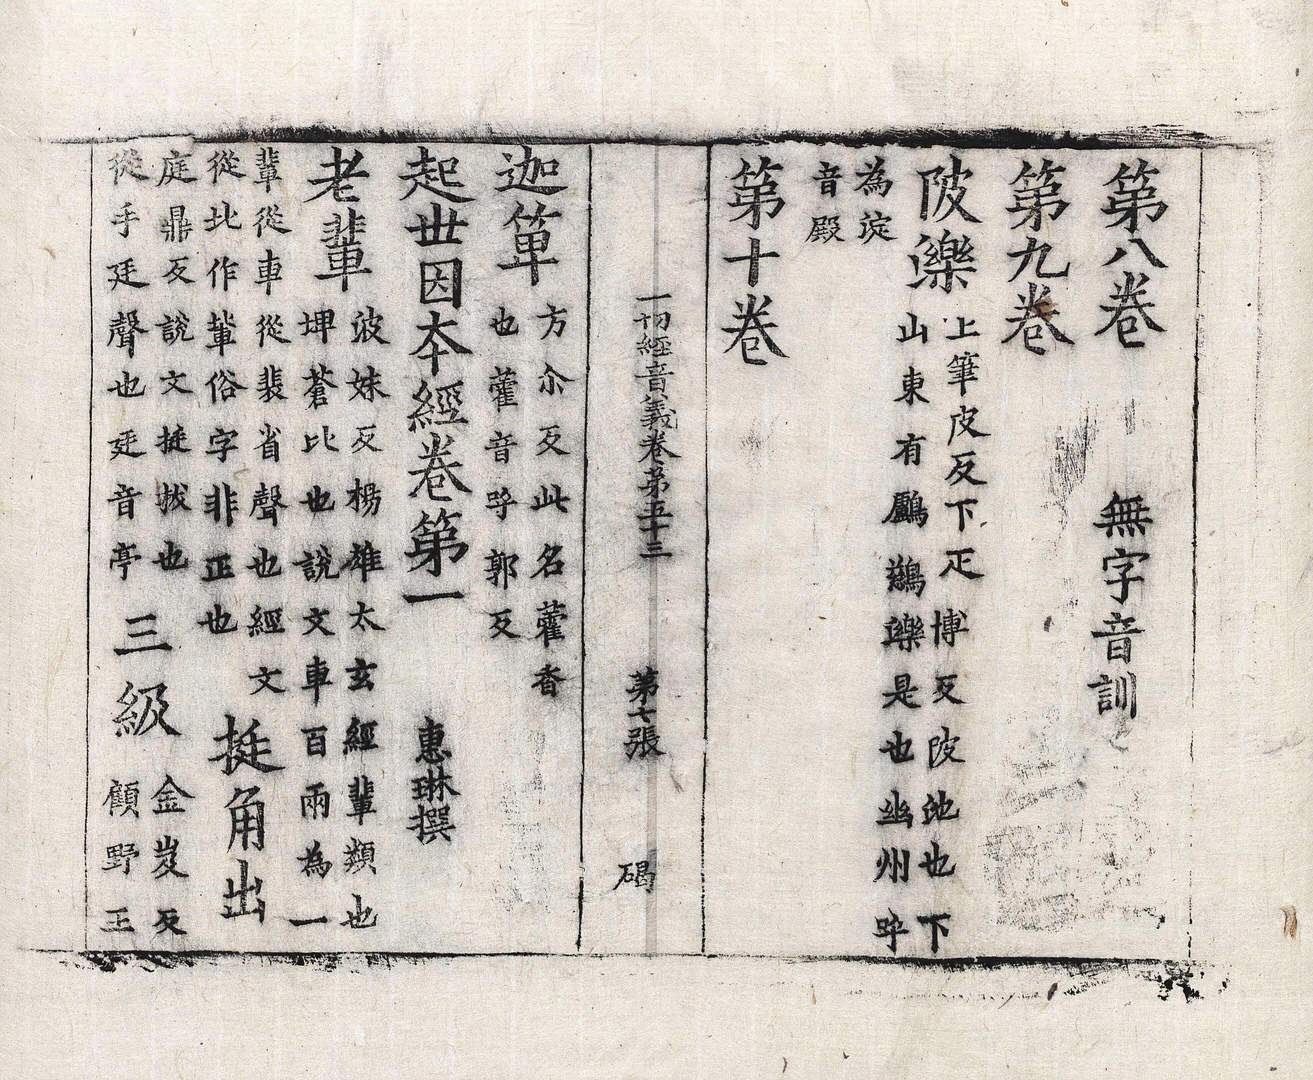 第八卷 無字音訓
第九卷
陂濼 上筆皮反下疋博反陂池也下
山東有鸕鷀濼是也幽州呼
為淀
音殿
第十卷
一切經音義卷第五十三 第七張 碣
迦箄 方尒反此名藿香
也藿音呼郭反
起世因本經卷第一 惠琳撰
老輩 波妹反楊雄太玄經輩類也
埤蒼比也說文車百兩為一
輩從車從裴省聲也經文
從比作軰俗字非正也 挺角出
庭鼎反說文挺拔也
從手廷聲也廷音亭 三級 金岌反
顧野王